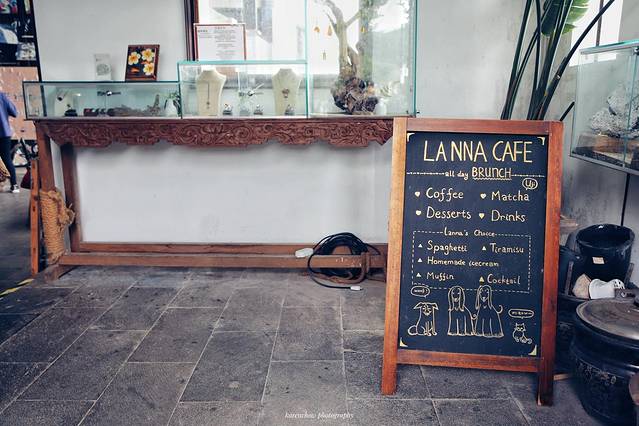 LANNA CAFE
all day BRUNCH
Up
Coffee
Matcha
Desserts
Drinks
Lanna's Choice
Spaghetti
Tiramisu
Homemade icecream
Muffin
Cocktail
karenchow photography